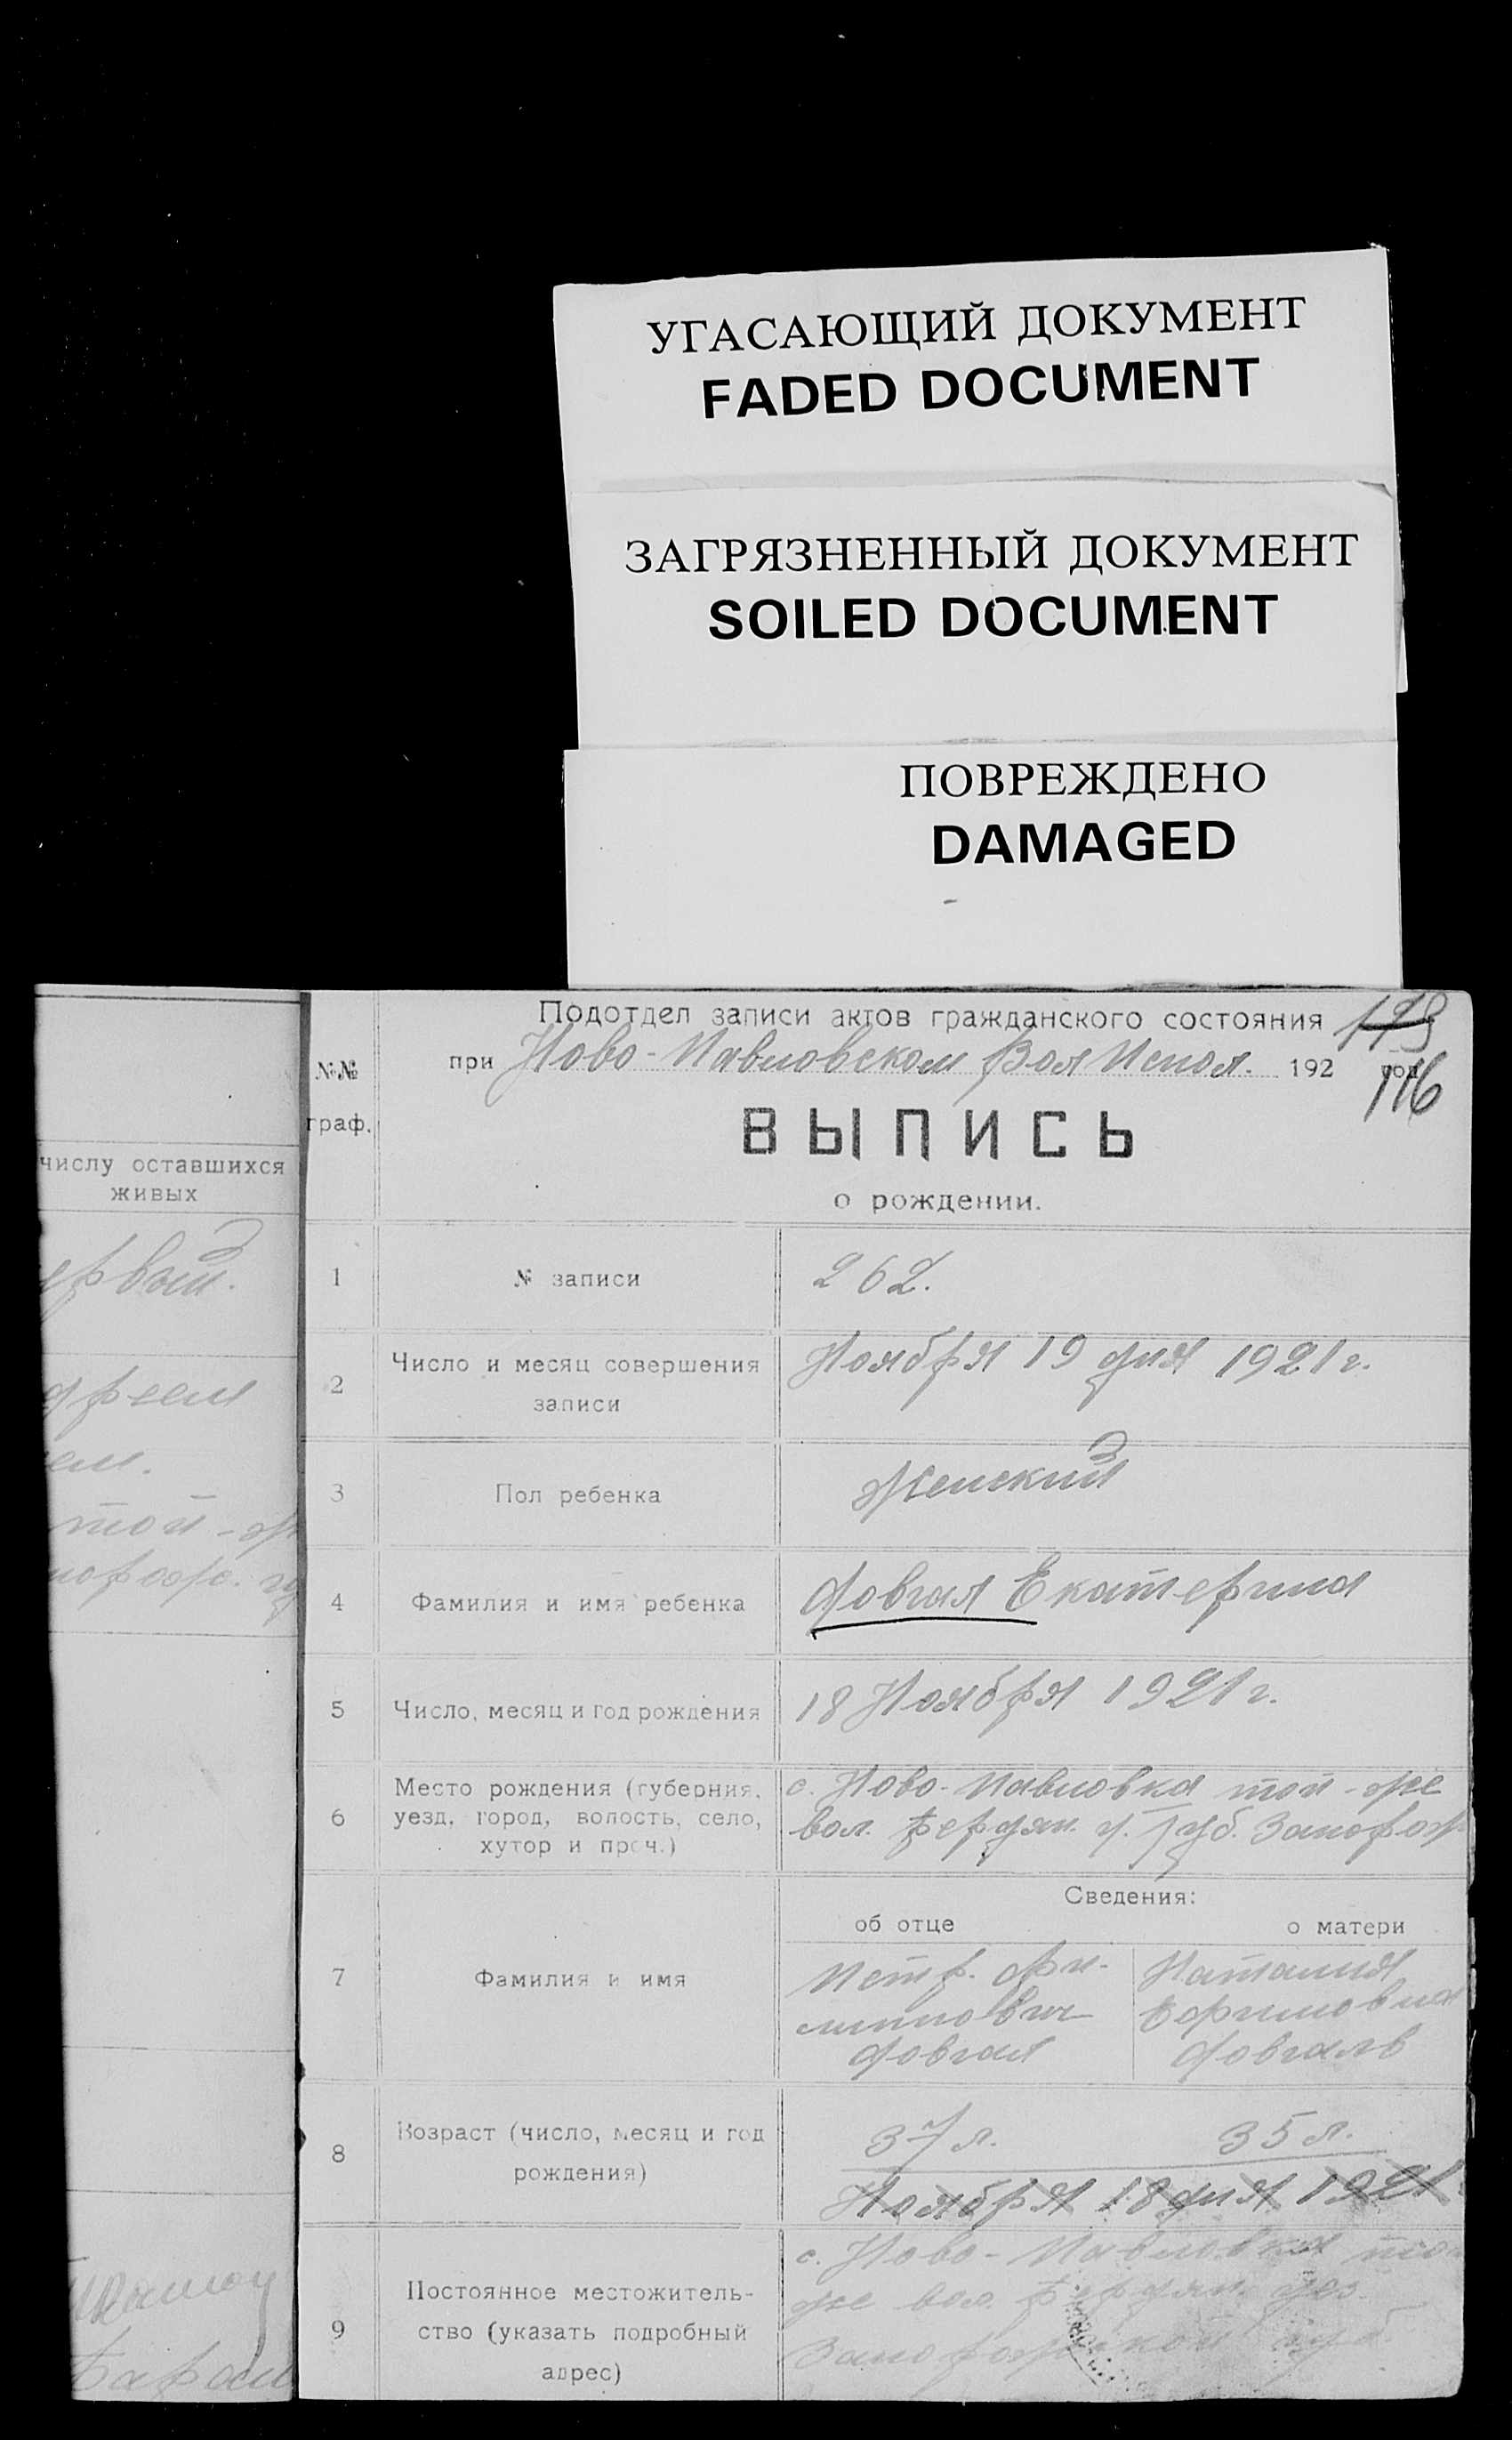 УГАСАЮЩИЙ ДОКУМЕНТ
FADED DOCUMENT
ЗАГРЯЗНЕННЫЙ ДОКУМЕНТ
SOILED DOCUMENT
ПОВРЕЖДЕНО
DAMAGED
числу оставшихся
живых
той-ж
Подотдел записи актов гражданского состояния
при Ново-Павловском Вол Испол. 192 год
116
№№
граф.
ВЫПИСЬ
о рождении.
1 № записи 262.
2 Число и месяц совершения записи Ноября 19 дня 1921 г.
3 Пол ребенка Женский
4 Фамилия и имя ребенка Довгая Екатерина
5 Число, месяц и год рождения 18 Ноября 1921 г.
6 Место рождения (губерния, с. Ново-Павловка той-же
уезд, город, волость, село, вол. Бердян. у. Губ. Запорож
хутор и проч.)
Сведения:
об отце о матери
7 Фамилия и имя
Петр. Фи- Наталия
липпович Ефимовна
Довгал Довгаль
8 Возраст (число, месяц и год рождения) 37 л. 35 л.
Ноября 18 дня 1921
9 Постоянное местожитель-
ство (указать подробный
адрес)
с. Ново-Павловка той
же вол. Бердян. уез.
Запорожской губ.